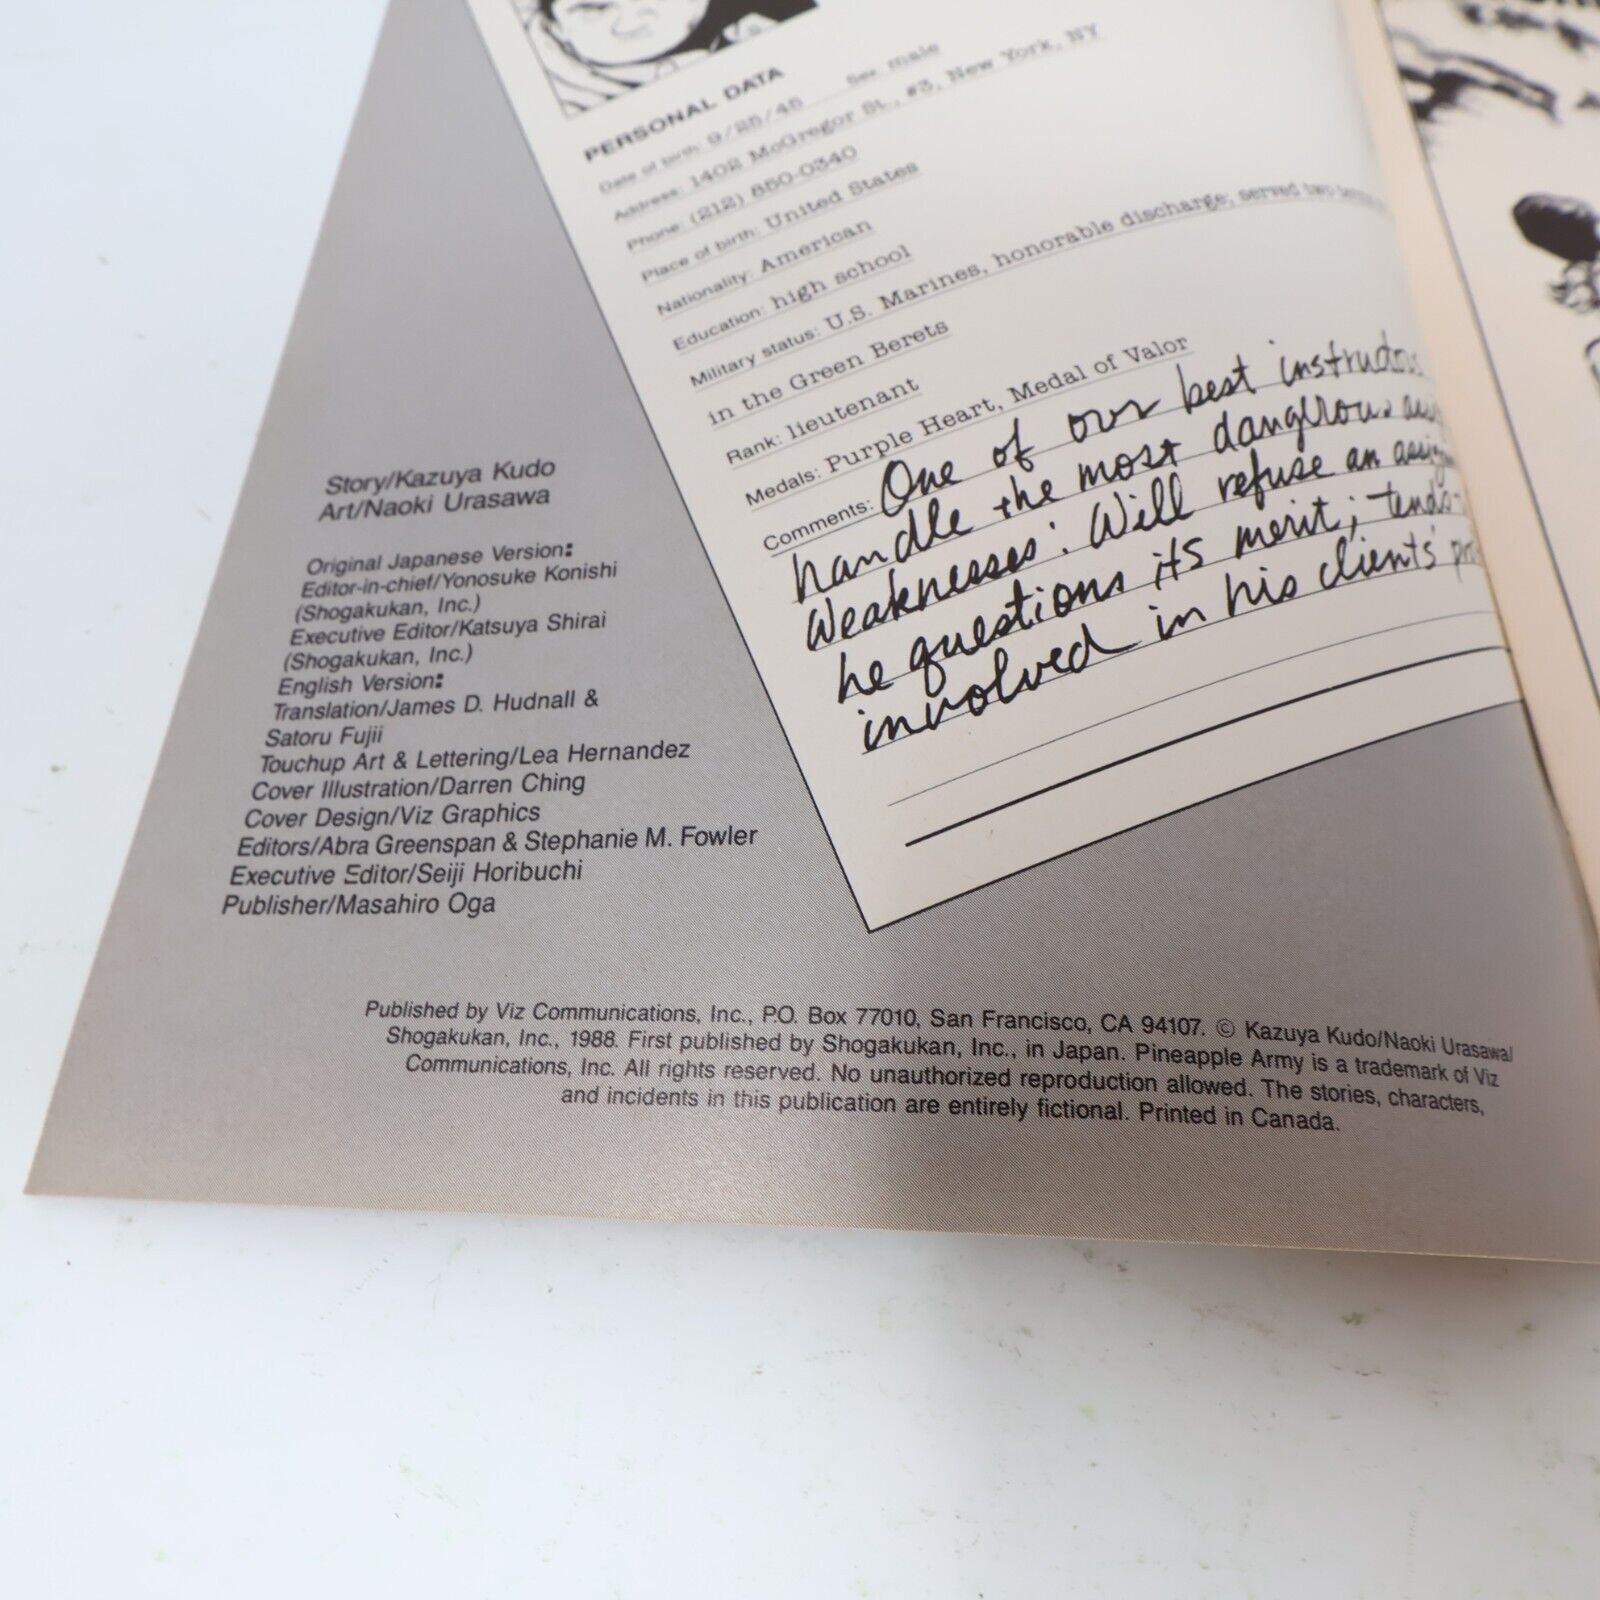 PERSONAL DATA
Date of birth: 9/25/45 Sex: male
Address: 1402 McGregor St., #3, New York, NY
Phone: (212) 850-0340
Place of birth: United States
Nationality: American
Education: high school
Military status: U.S. Marines, honorable discharge; served two
in the Green Berets
Rank: lieutenant
Medals: Purple Heart, Medal of Valor
Comments: One of our best
handle the most dangerous
Weaknesses: Will refuse an
he questions its merit; tends
involved in his clients'
Story/Kazuya Kudo
Art/Naoki Urasawa
Original Japanese Version:
Editor-in-chief/Yonosuke Konishi
(Shogakukan, Inc.)
Executive Editor/Katsuya Shirai
(Shogakukan, Inc.)
English Version:
Translation/James D. Hudnall &
Satoru Fujii
Touchup Art & Lettering/Lea Hernandez
Cover Illustration/Darren Ching
Cover Design/Viz Graphics
Editors/Abra Greenspan & Stephanie M. Fowler
Executive Editor/Seiji Horibuchi
Publisher/Masahiro Oga
Published by Viz Communications, Inc., P.O. Box 77010, San Francisco, CA 94107. © Kazuya Kudo/Naoki Urasawa/
Shogakukan, Inc., 1988. First published by Shogakukan, Inc., in Japan. Pineapple Army is a trademark of Viz
Communications, Inc. All rights reserved. No unauthorized reproduction allowed. The stories, characters,
and incidents in this publication are entirely fictional. Printed in Canada.